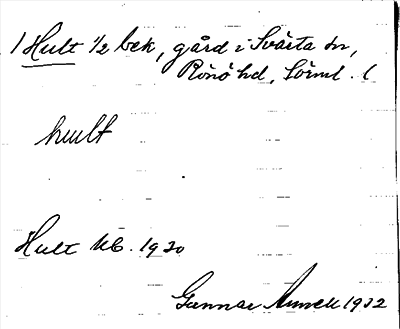 1 Hult ½ bek, gård i Svärta sn,
Rönö hd, Sörml. (
hult
Hult kb. 1930
Gunnar 1932